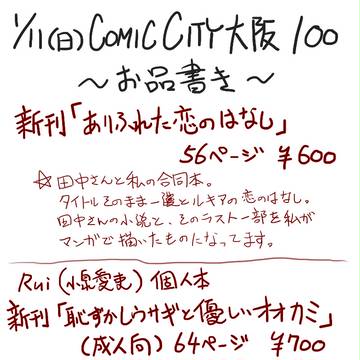 1/11(日) COMIC CITY大阪100
～お品書き～
新刊「ありふれた恋のはなし」
56ページ ¥600
☆田中さんと私の合同本。
タイトルそのまま一護とルキアの恋のはなし。
田中さんの小説と、そのラスト一部を私が
マンガで描いたものになってます。
Rui(小泉愛吏)個人本
新刊「恥ずかしウサギと優しいオオカミ」
(成人向) 64ページ ¥700